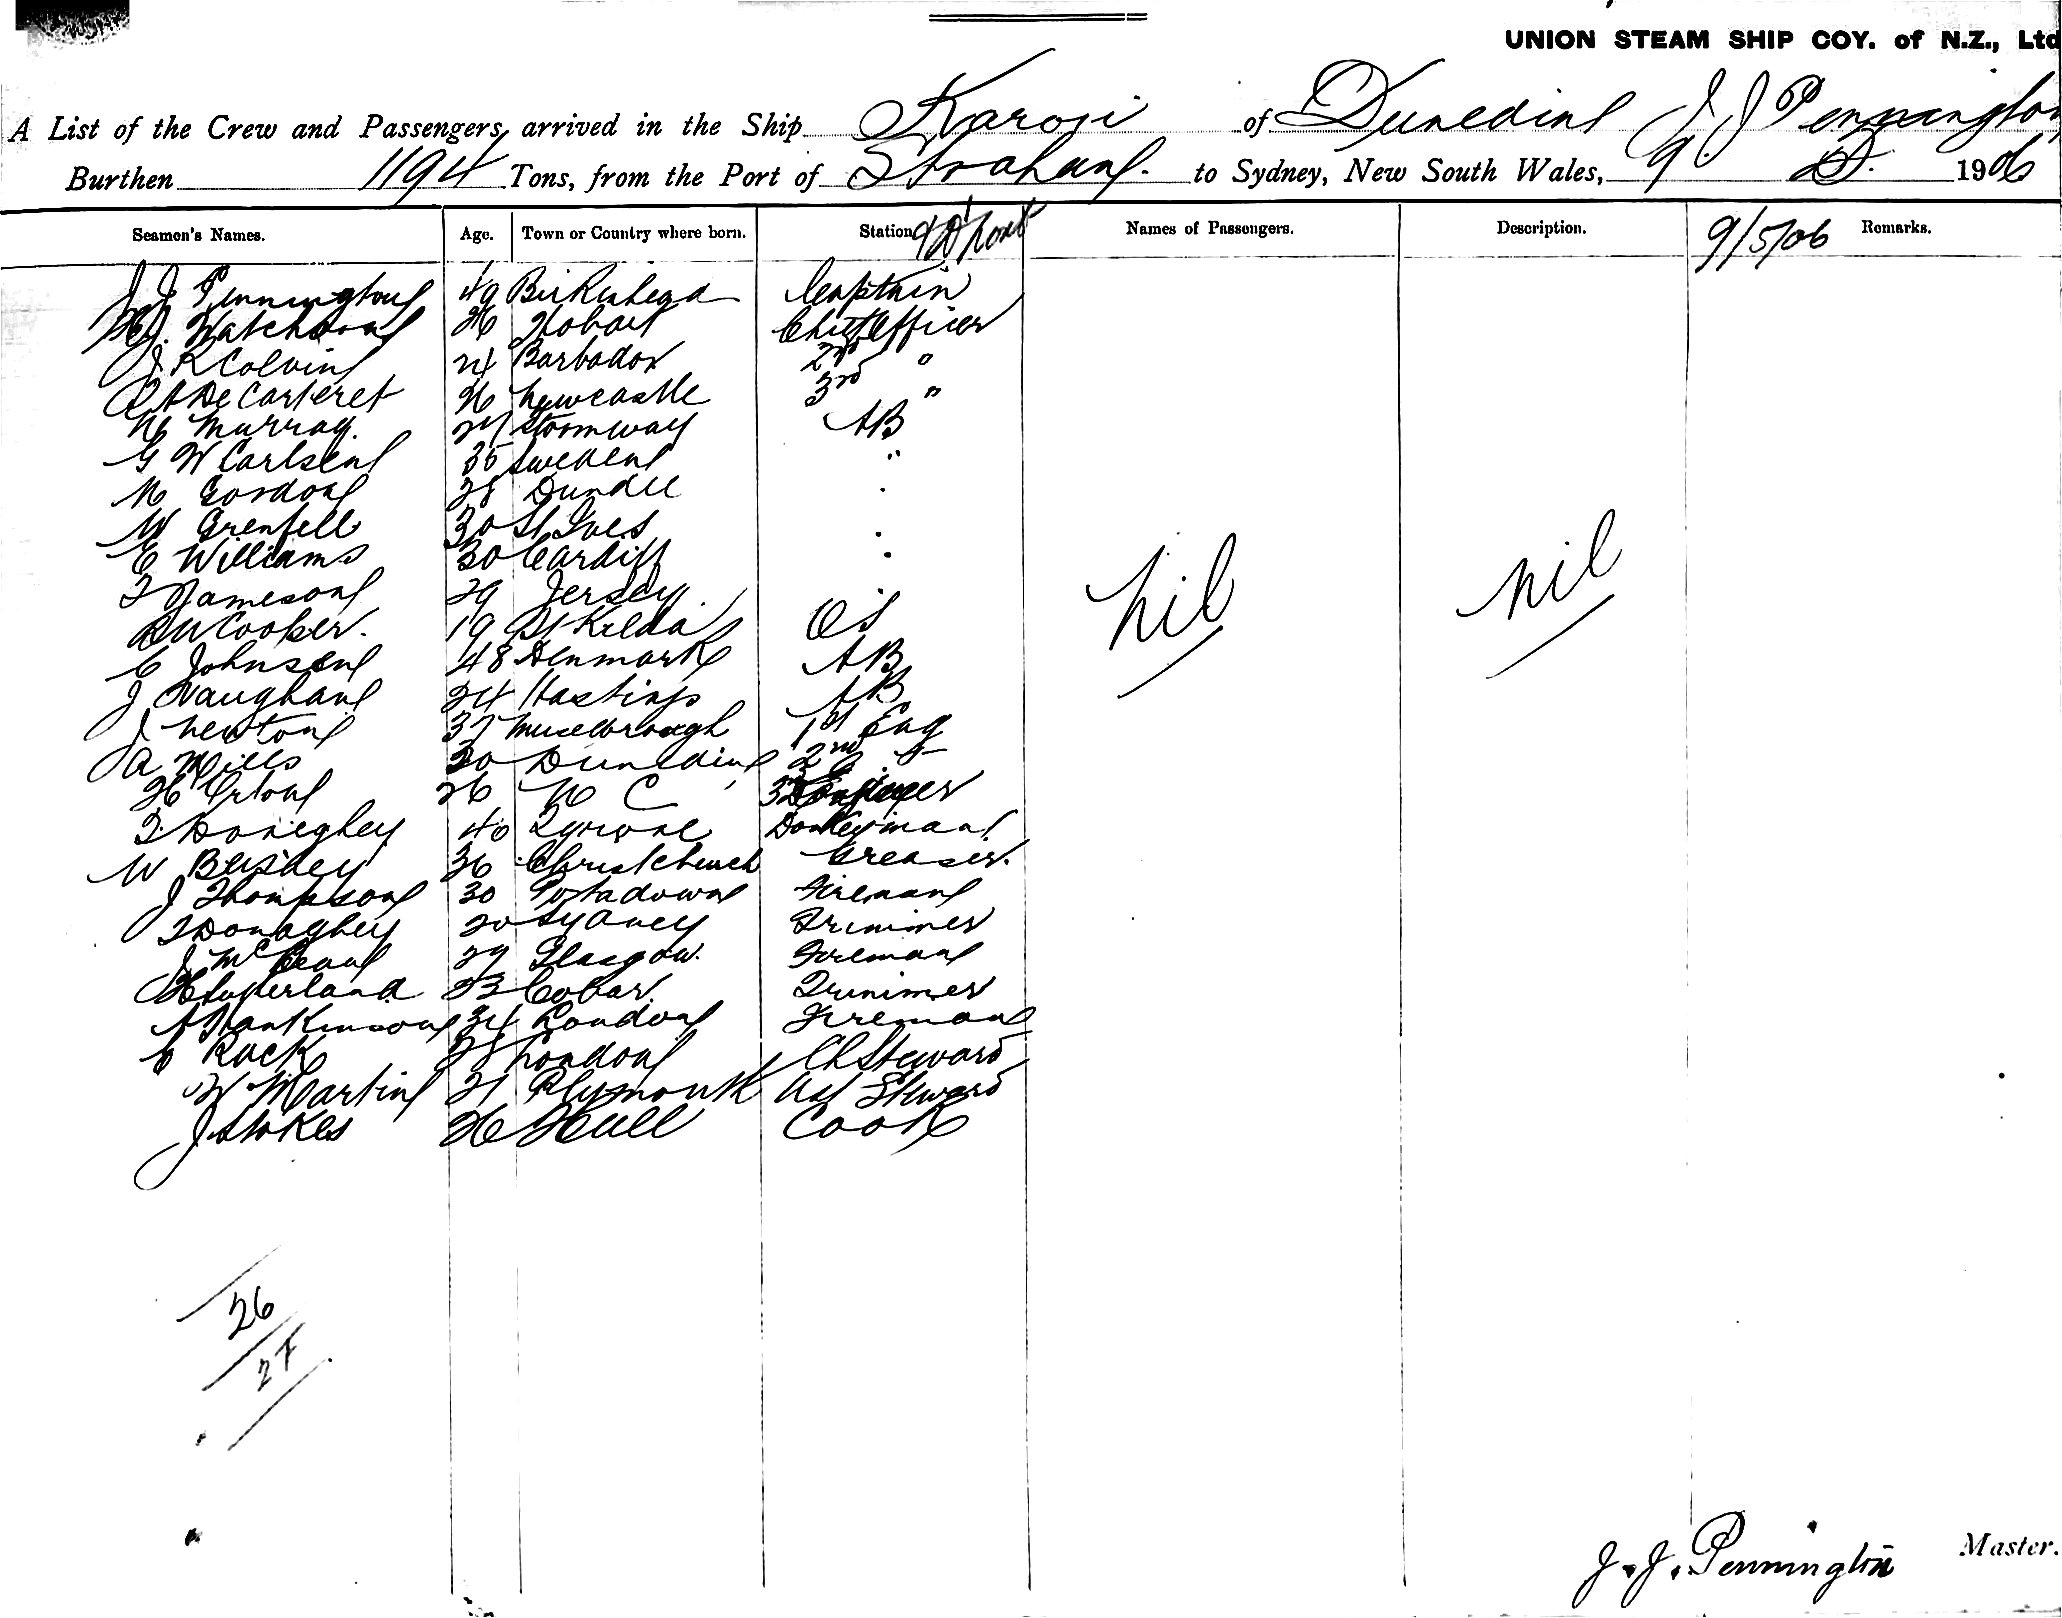 UNION STEAM SHIP COY. of N.Z., Ltd
A List of the Crew and Passengers, arrived in the Ship Karori of Dunedin J J Pennington
Burthen 1194 Tons, from the Port of Strahan. to Sydney, New South Wales, 9. 1906
Seamen's Names. Age. Town or Country where born. Station Names of Passengers. Description. 9/5/06 Remarks.
J J Pennington 49 Birkenhead Captain
Watchorn 26 Hobart Chief Officer
J R Colvin 24 Barbados 2nd "
De Carteret 26 Newcastle 3rd "
Murray. 27 Stornway AB
G W Carlsen 35 Sweden "
Gordon 28 Dundee
W Grenfell 30 St Ives
E Williams 30 Cardiff
Jameson 29 Jersey.
Cooper. 19 St Kilda OS
C Johnsen 48 Denmark AB
J Vaughan 24 Hastings AB
J Newton 37 Muselbrough 1st Eng
A Mills 30 Dunedin 2nd
H Orton 26 N C
T Doneghey 40 Tyrone Donkeyman
W 36 Christchurch Greaser.
J Thompson 30 Portadown Fireman
T Donaghey 20 Sydney Trimmer
J McBean 29 Glasgow. Fireman
Sutherland 23 Cobar. Trimmer
A Hankinson 34 London Fireman
C Ruck 28 London Ch Steward
W Martin 21 Plymouth Ast Steward
J Stokes 26 Hull Cook
nil nil
26
27
J. J. Pennington Master.